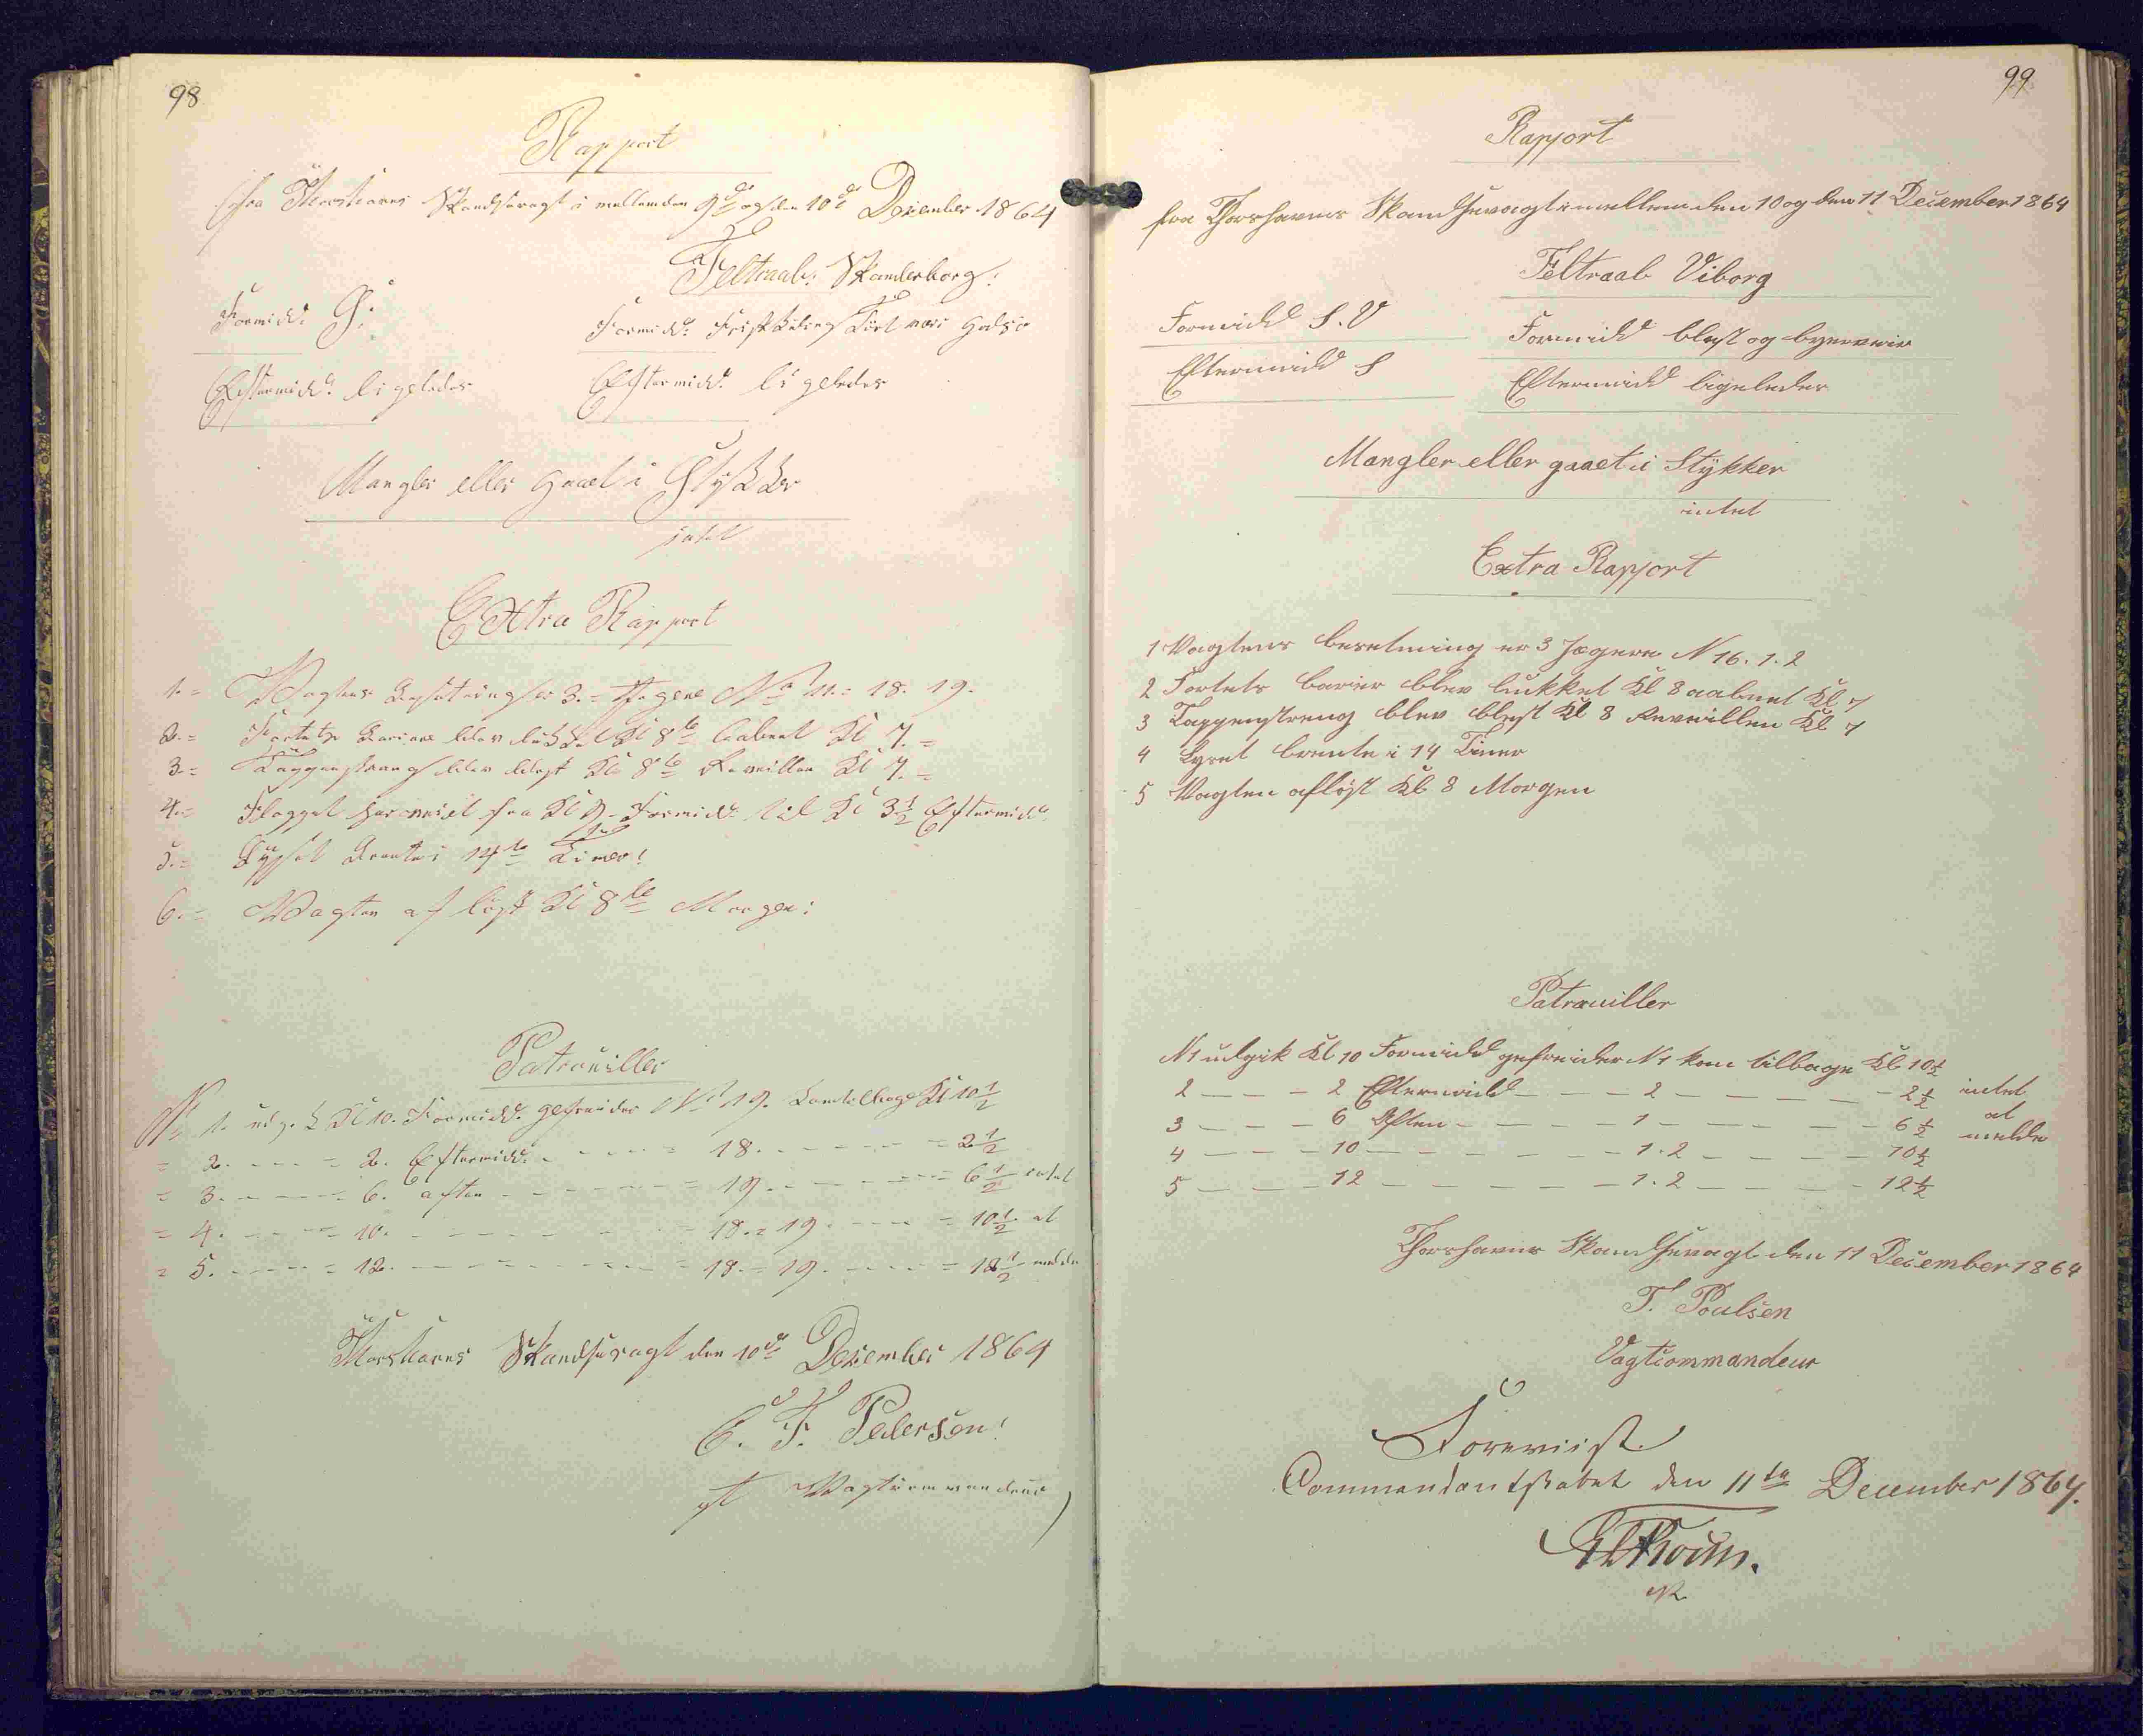 98
Rapport
fra Thorshavns Skandsevagt i mellem den 9de og den 10de December 1864
Feltraab: Skanderborg!
Formidd: S: Formidd: Frisk Kuling
Eftermidd: ligeledes Eftermidd: ligeledes
Mangler eller Gaaet i Stykker
intet
Extra Rapport
1.= Vagtens Besætning er 3.= Jægere No 11.= 18. 19.
2.= Fortets Bariere blev lukket Kl 8te aabnet Kl 7.=
3.= Tappenstreng blev blæst Kl 8te Reveillen Kl 7.=
4.= Flagget har vaiet fra Kl 9 Formidd: til Kl 3½ Eftermidd:
5.= Lyset brente i 14te Timer!
6.= Vagten afløst Kl 8te Morgen:
Patrouiller
No 1. udgik Kl 10. Formidd: gefreider No 19. kom tilbage Kl 10½
= 2. - - - = 2. Eftermidd: - - - - 18. - - - - = 2½
= 3. - - - = 6. aften - - - - = 19. - - - - = 6½ intet
= 4. - - - = 10. - - - - - = 18. = 19. - - - = 10½ at
= 5. - - - = 12. - - - - - = 18. = 19. - - - = 12½ melde
Thorshavns Skandsevagt den 10de December 1864
C. F. Pedersen!
Vagtcommandeur
99
Rapport
fra Thorshavns Skandsevagt imellem den 10 og den 11 December 1864
Feltraab Viborg
Formidd S.V Formidd blæst og byeveir
Eftermidd S Eftermidd ligeledes
Mangler eller gaaet i Stykker
intet
Extra Rapport
1 Vagtens besetning er 3 Jægere N 16. 1. 2
2 Fortets barier blev lukket Kl 8 aabnet Kl 7
3 Tappenstreng blev blæst Kl 8 Reveillen Kl 7
4 Lyset brente i 14 Timer
5 Vagten afløst Kl 8 Morgen
Patrouiller
N1 udgik Kl 10 Formidd gefreider N1 kom tilbage Kl 10½
2 - - - 2 Eftermidd - - - 2 - - - - - 2½ intet
3 - - - 6 Aften - - - - 1 - - - - - 6½ at
4 - - - 10 - - - - - - 1.2 - - - - 10½ melde
5 - - - 12 - - - - - - 1.2 - - - - 12½
Thorshavns Skandsevagt den 11 December 1864
T. Poulsen
Vagtcommandeur
Foreviist.
Commandantskabet den 11te December 1864.